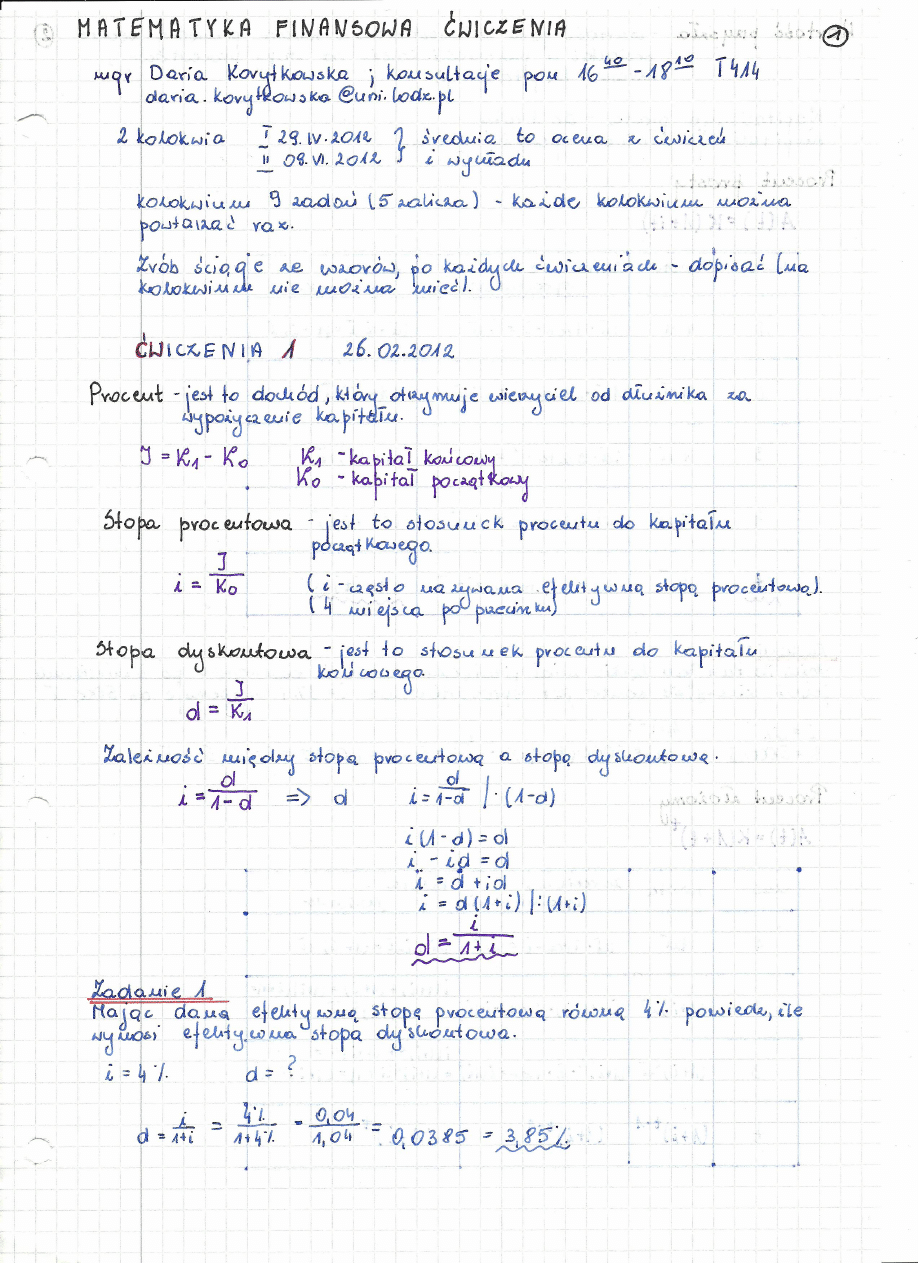 MATEMATYKA FINANSOWA ĆWICZENIA
1
mgr Daria Korytkowska ; konsultacje pon 16 40 - 18 10 T414
daria.korytkowska@uni.lodz.pl
2 kolokwia I 29.IV.2012 } średnia to ocena z ćwiczeń
II 09.VI.2012 } i wykładu
kolokwium 9 zadań (5 zalicza) - każde kolokwium można
powtarzać raz.
Zrób ściągę ze wzorów, po każdych ćwiczeniach - dopisać (na
kolokwium nie można mieć).
ĆWICZENIA 1 26.02.2012
Procent - jest to dochód, który otrzymuje wierzyciel od dłużnika za
wypożyczenie kapitału.
J = K1 - K0 K1 - kapitał końcowy
K0 - kapitał początkowy
Stopa procentowa - jest to stosunek procentu do kapitału
początkowego.
i = J/K0 (i - często nazywana efektywną stopą procentową).
(4 miejsca po przecinku)
Stopa dyskontowa - jest to stosunek procentu do kapitału
końcowego
d = J/K1
Zależność między stopą procentową a stopą dyskontową.
i = d/1-d => d i = d/1-d | ·(1-d)
i(1-d) = d
i - id = d
i = d + id
i = d(1+i) |:(1+i)
d = i/1+i
Zadanie 1
Mając daną efektywną stopę procentową równą 4% powiedz, ile
wynosi efektywna stopa dyskontowa.
i = 4% d = ?
d = i/1+i = 4%/1+4% = 0,04/1,04 = 0,0385 = 3,85%